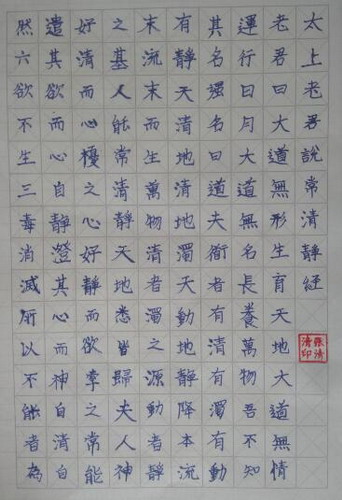 太上老君說常清靜經
老君曰大道無形生育天地大道無情
運行日月大道無名長養萬物吾不知
其名强名曰道夫衜者有清有濁有動
有靜天清地清地濁天動地靜降本流
末流末而生萬物清者濁之源動者靜
之基人能常清靜天地悉皆歸夫人神
好清而心擾之心好靜而欲牽之常能
遣其欲而心自靜澄其心而神自清自
然六欲不生三毒消滅所以不能者為